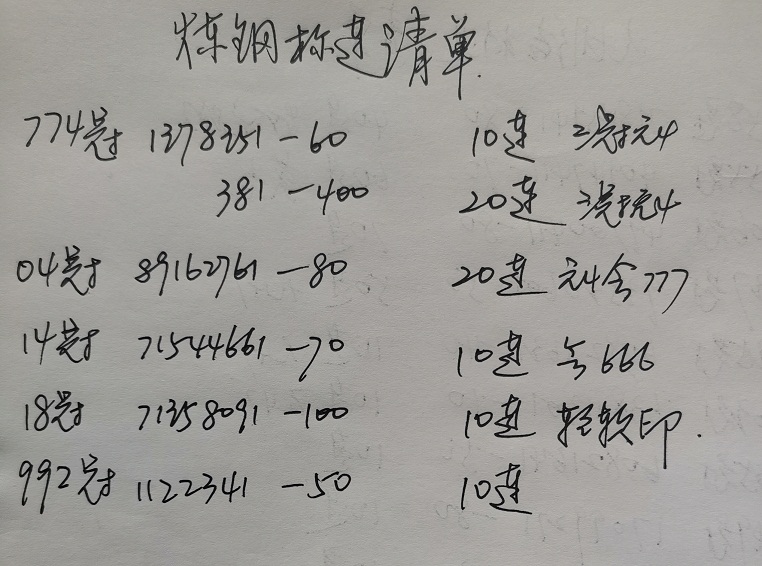 炼钢标连清单
774冠 1378351-60 10连 2冠抗4
381-400 20连 2冠抗4
04冠 89162761-80 20连 无4含777
14冠 71544661-70 10连 含666
18冠 71358091-100 10连 轻软印.
992冠 1122341-50 10连